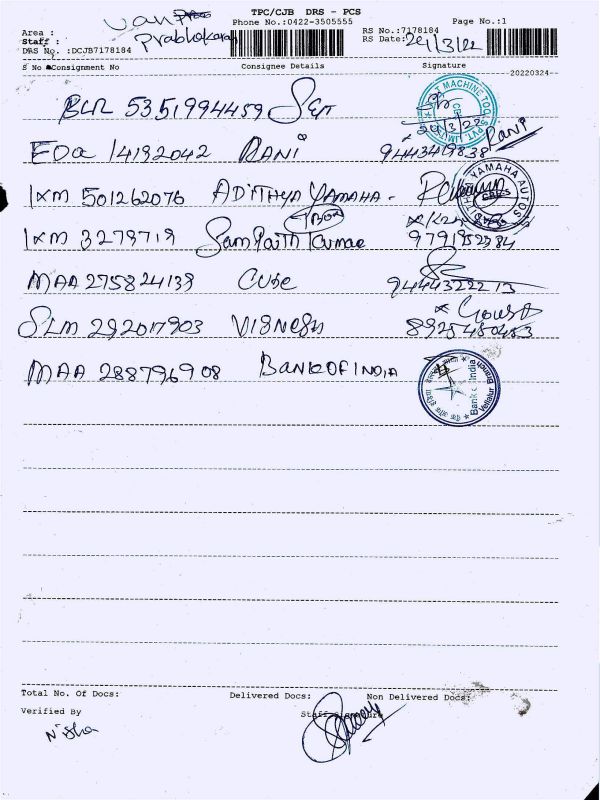 TPC/CJB DRS - PCS
Phone No.:0422-3505555
Page No.:1
Area :
van
Staff :
Prabhakaran
RS No.:7178184
RS Date:24/3/22
DRS No. :DCJB7178184
S No Consignment No Consignee Details Signature
20220324
BLR 5351994459
MACHINE TOOLS PVT. LIMITED
EDa 14192042 RANI 9443419838 Rani
IXM 501262076 ADITHYA YAMAHA -
YAMAHA AUTOS
IXM 3279719 Sampath Kumar
MAA 275824139 CUBE 9444322213
SLM 292017903 VIGNESH 8925480453
MAA 288796908 BANK OF INDIA
Bank of India
Vellalur Branch
Total No. Of Docs: Delivered Docs: Non Delivered Docs:
Verified By Staff Signature
Nisha